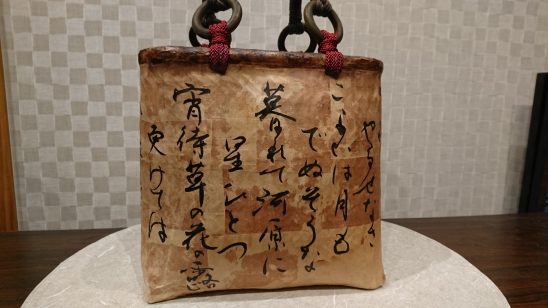 やるせなさ
こよひは月も
でぬそうな
暮れて河原に
星ひとつ
宵待草の花の露
更けては